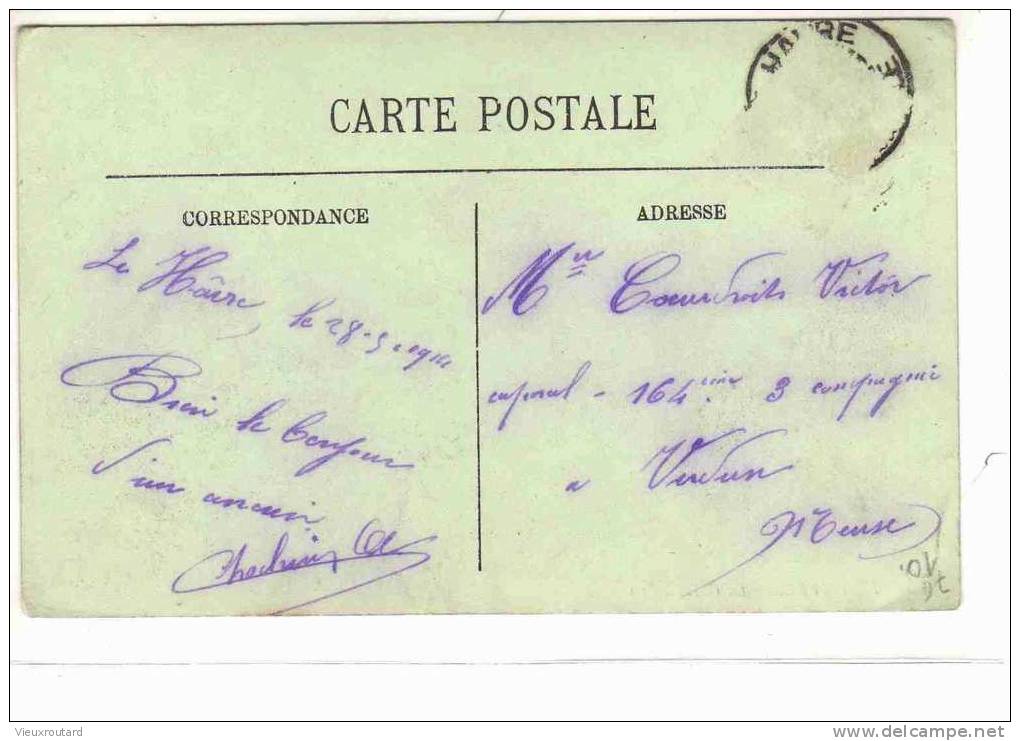 HAVRE
CARTE POSTALE
CORRESPONDANCE
Le Hâvre, le 28-5-1914
Bien le bonjour
d'un ancien
ADRESSE
Mr Coeurdroit Victor
caporal - 164ème 3 compagnie
a Verdun
Meuse
Vieuxroutard
www.delcampe.net